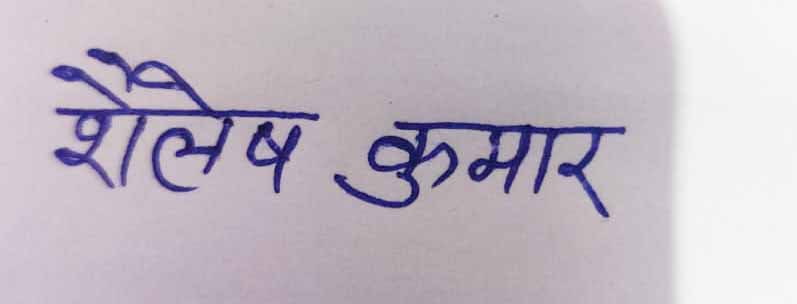 शैलेष कुमार